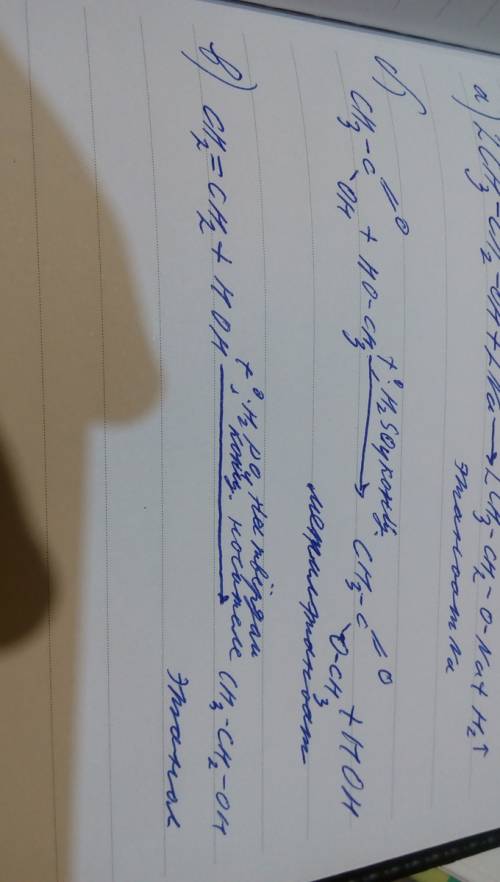 а) 2CH3-CH2-OH+2Na→2CH3-CH2-O-Na+H2↑
этаноат Na
б) CH3-C=O OH + HO-CH3 t°; H2SO4 конц. → CH3-C=O O-CH3 + HOH
метилэтаноат
в) CH2=CH2+HOH t°; H3PO4 конц. на твёрдом носителе → CH3-CH2-OH
этанол